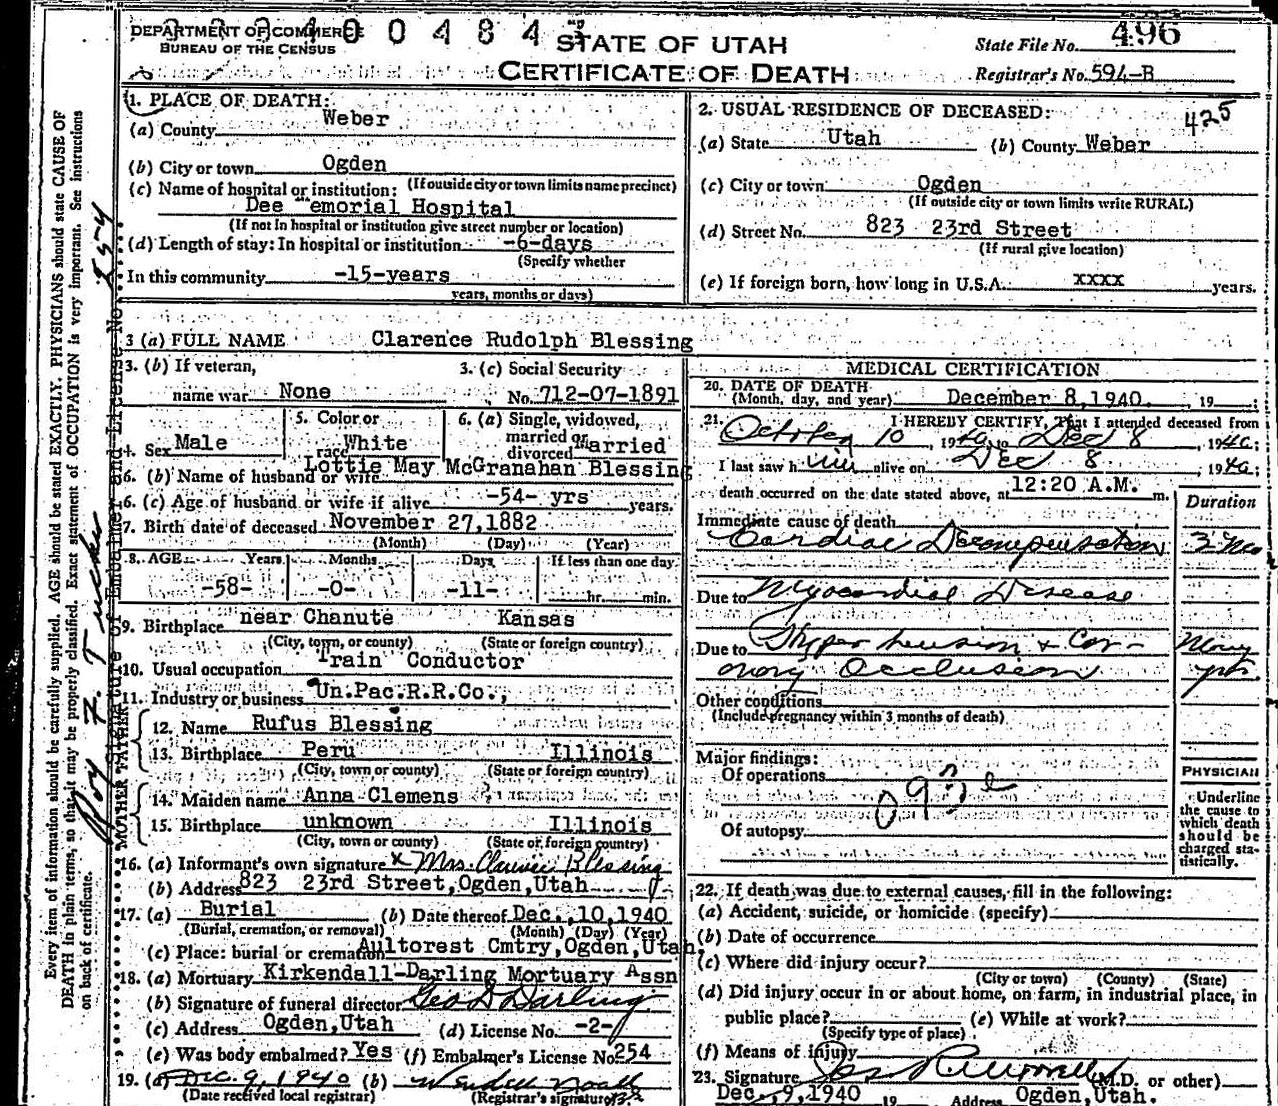 DEPARTMENT OF COMMERCE
BUREAU OF THE CENSUS
STATE OF UTAH
CERTIFICATE OF DEATH
State File No. 496
Registrar's No. 594-B
425
1. PLACE OF DEATH:
(a) County Weber
(b) City or town Ogden
(If outside city or town limits name precinct)
(c) Name of hospital or institution:
Dee emorial Hospital
(If not in hospital or institution give street number or location)
(d) Length of stay: In hospital or institution -6-days
(Specify whether
In this community -15-years
years, months or days)
2. USUAL RESIDENCE OF DECEASED:
(a) State Utah (b) County Weber
(c) City or town Ogden
(If outside city or town limits write RURAL)
(d) Street No. 823 23rd Street
(If rural give location)
(e) If foreign born, how long in U.S.A. xxxx years.
3 (a) FULL NAME Clarence Rudolph Blessing
3. (b) If veteran, name war None
3. (c) Social Security No. 712-07-1891
4. Sex Male
5. Color or race White
6. (a) Single, widowed, married or divorced Married
6. (b) Name of husband or wife Lottie May McGranahan Blessing
6. (c) Age of husband or wife if alive -54- yrs years.
7. Birth date of deceased November 27,1882
(Month) (Day) (Year)
8. AGE Years Months Days If less than one day
-58- -0- -11- hr. min.
9. Birthplace near Chanute Kansas
(City, town, or county) (State or foreign country)
10. Usual occupation Train Conductor
11. Industry or business Un.Pac.R.R.Co.,
FATHER
12. Name Rufus Blessing
13. Birthplace Peru Illinois
(City, town or county) (State or foreign country)
MOTHER
14. Maiden name Anna Clemens
15. Birthplace unknown Illinois
(City, town or county) (State or foreign country)
16. (a) Informant's own signature x Mrs. Clarence Blessing
(b) Address 823 23rd Street,Ogden,Utah
17. (a) Burial (b) Date thereof Dec. 10,1940
(Burial, cremation, or removal) (Month) (Day) (Year)
(c) Place: burial or cremation Aultorest Cmtry,Ogden,Utah,
18. (a) Mortuary Kirkendall-Darling Mortuary Assn
(b) Signature of funeral director Geo S Darling
(c) Address Ogden,Utah (d) License No. -2-
(e) Was body embalmed? Yes (f) Embalmer's License No 254
19. (a) Dec. 9, 1940 (b) Wendell Noall
(Date received local registrar) (Registrar's signature)
MEDICAL CERTIFICATION
20. DATE OF DEATH
(Month, day, and year) December 8,1940. , 19
21. I HEREBY CERTIFY, That I attended deceased from
October 10, 1940 to Dec 8, 1940;
I last saw him alive on Dec 8, 1940;
death occurred on the date stated above, at 12:20 A.M. m.
Duration
Immediate cause of death
Cardiac Decompensation
Due to Myocardial Disease
Due to Hypertension & Cor-
onary Occlusion
Many yrs.
Other conditions
(Include pregnancy within 3 months of death)
Major findings:
Of operations
Of autopsy
PHYSICIAN
Underline the cause to which death should be charged statistically.
22. If death was due to external causes, fill in the following:
(a) Accident, suicide, or homicide (specify)
(b) Date of occurrence
(c) Where did injury occur?
(City or town) (County) (State)
(d) Did injury occur in or about home, on farm, in industrial place, in
public place? (e) While at work?
(Specify type of place)
(f) Means of injury
23. Signature (M.D. or other)
Dec. 9,1940 19 Address Ogden,Utah.
Every item of information should be carefully supplied. AGE should be stated EXACTLY. PHYSICIANS should state CAUSE OF
DEATH in plain terms, so that it may be properly classified. Exact statement of OCCUPATION is very important. See instructions
on back of certificate.
Signature of Embalmer and License No. 254
Roy F. Tucker